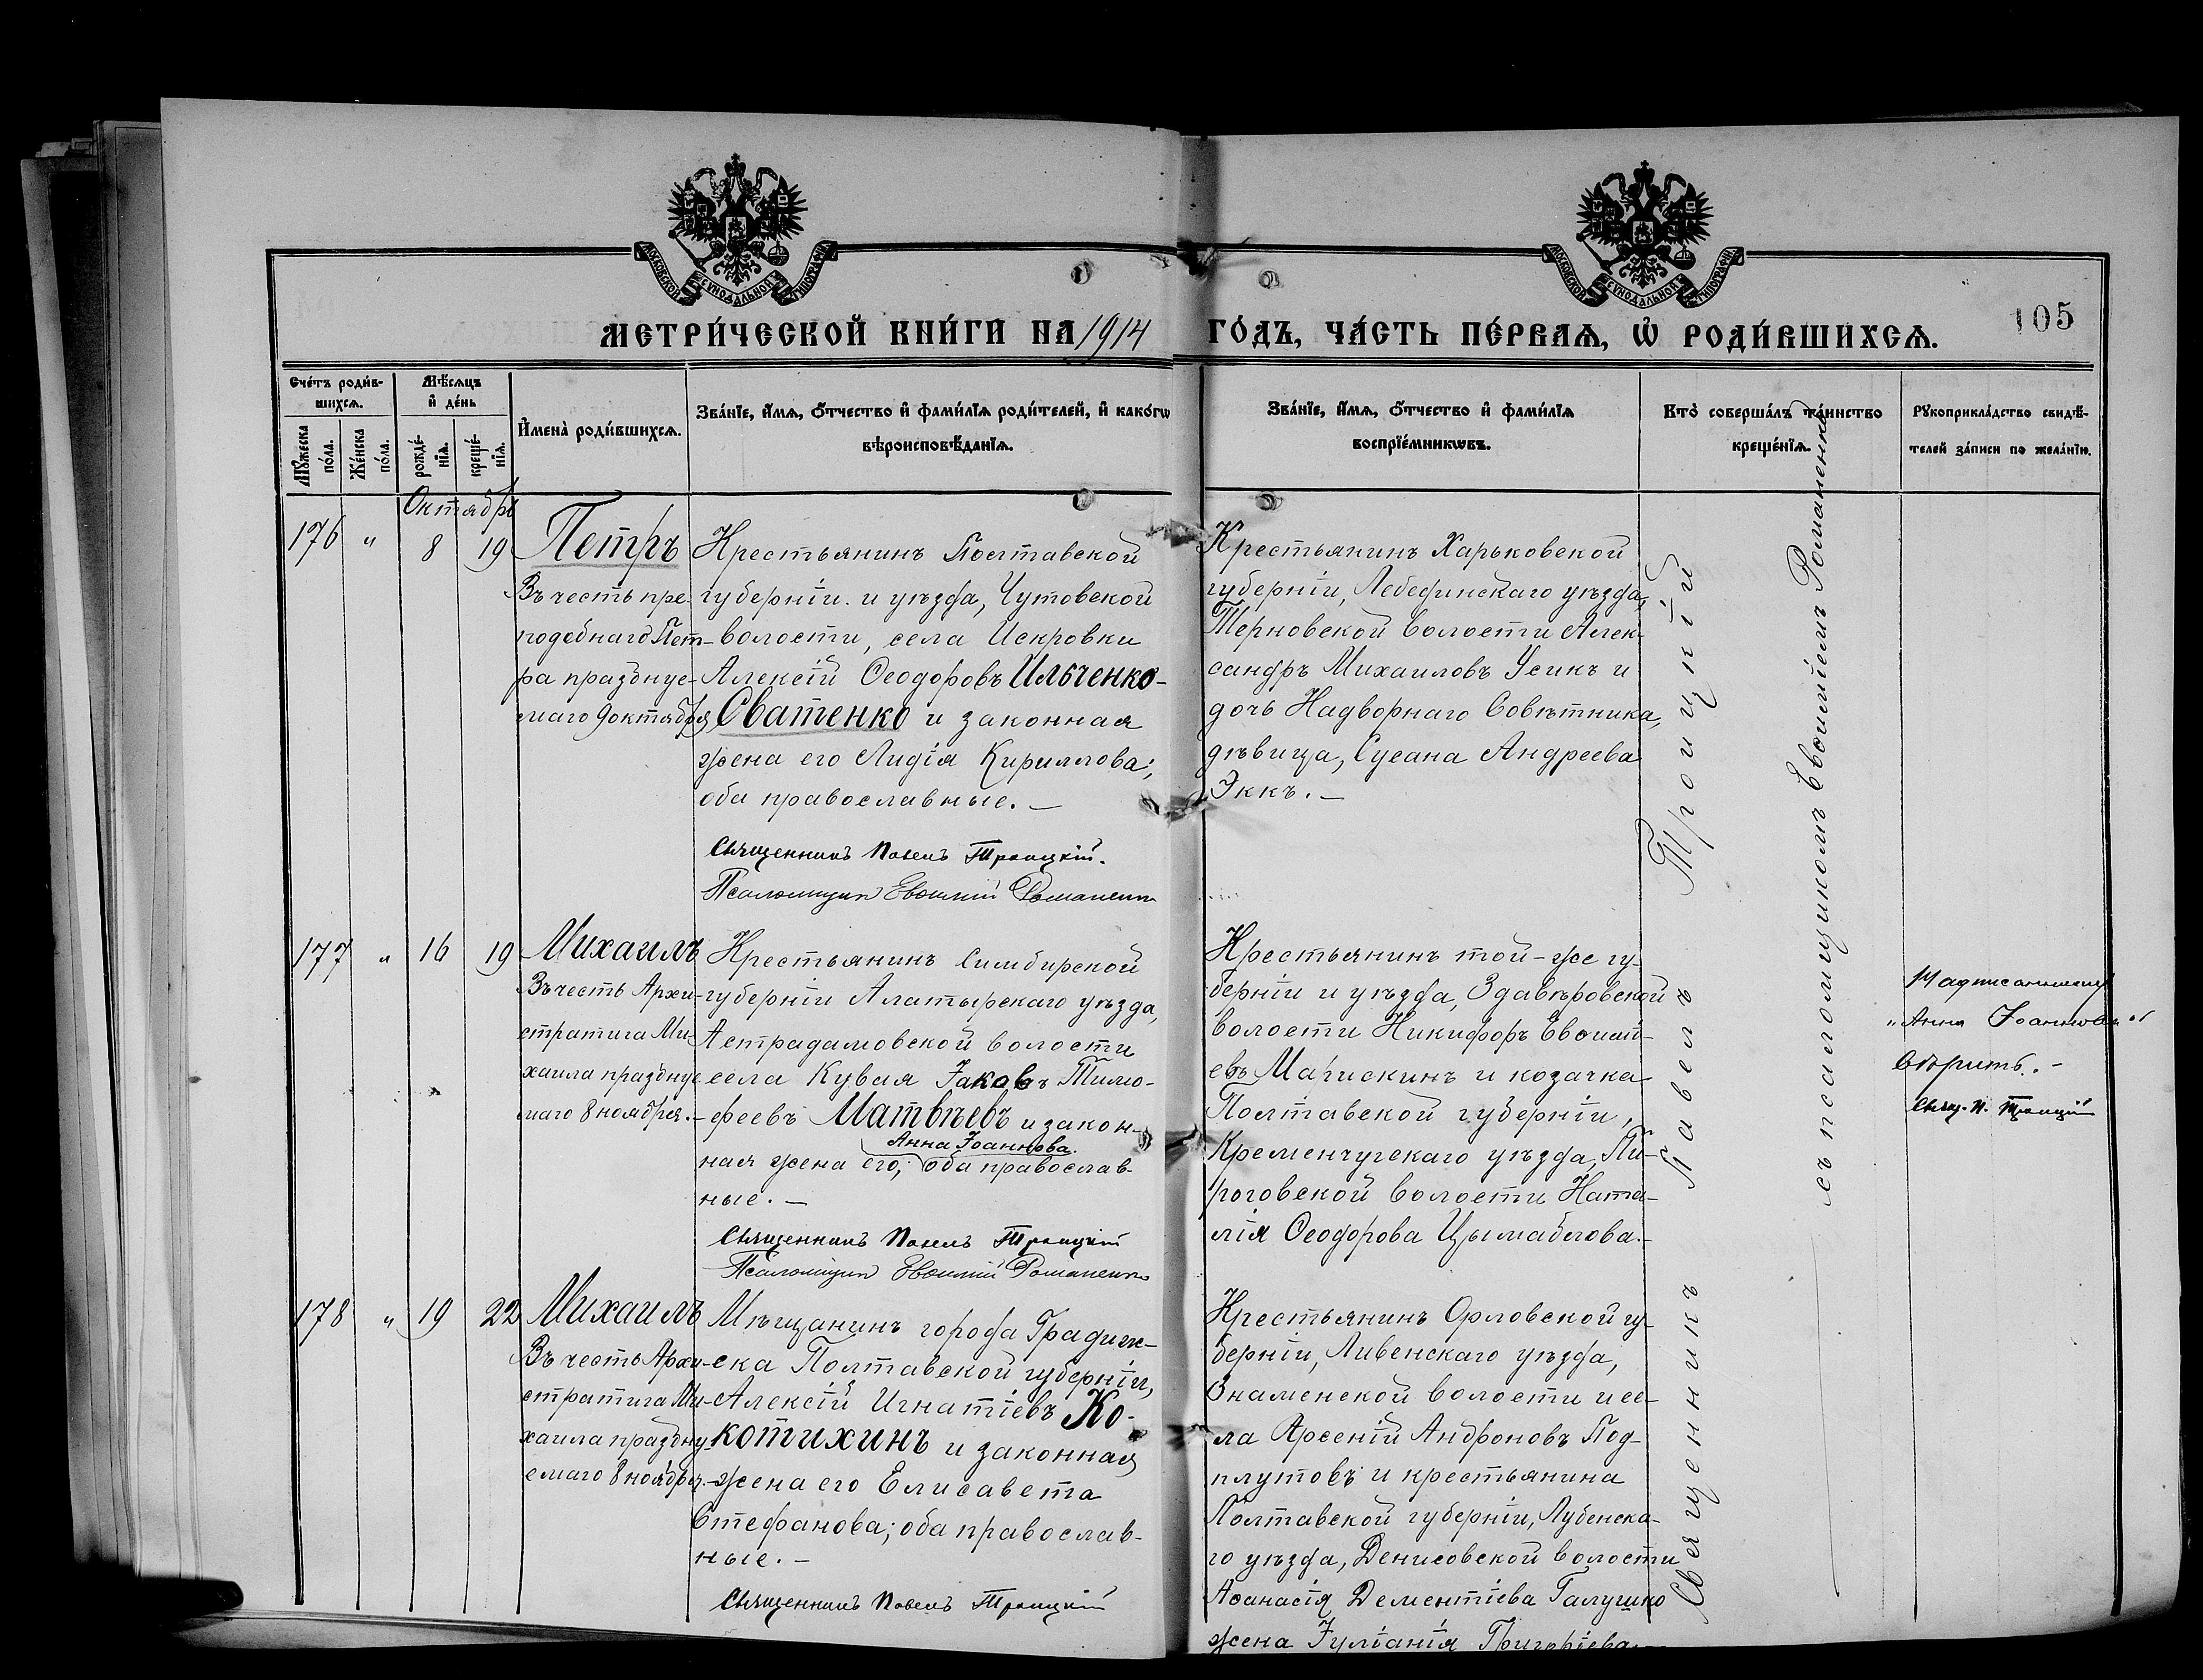 МОСКОВСКОЙ СѴНОДАЛЬНОЙ ТИПОГРАФІИ
МОСКОВСКОЙ СѴНОДАЛЬНОЙ ТИПОГРАФІИ
МЕТРИ́ЧЕСКОЙ КНИ́ГИ НА 1914
ГО́ДЪ, ЧА́СТЬ ПЕ́РВАѦ, Ѡ҆ РОДИ́ВШИХСѦ.
105
Сче́тъ роди́в-
шихсѧ.
Мꙋ́жеска
по́ла.
Же́нска
по́ла.
Мѣ́сѧцъ
и҆ де́нь
рожде́-
нїѧ.
креще́-
нїѧ.
И҆мена̀ роди́вшихсѧ.
Зва́нїе, и҆́мѧ, ѻ҆́тчество и҆ фами́лїѧ роди́телей, и҆ како́гѡ
вѣроисповѣ́данїѧ.
Зва́нїе, и҆́мѧ, ѻ҆́тчество и҆ фами́лїѧ
воспрїе́мникѡвъ.
Кто̀ соверша́лъ та́инство
креще́нїѧ.
Рꙋкоприкла́дство свидѣ́-
телей за́писи по жела́нїю.
Октябрь
176 " 8 19
Петръ
Въ честь пре-
подобнаго Пет-
ра празддуе-
маго 9 октября
Крестьянинъ Полтавской
губерніи и уѣзда, Чутовской
волости, села Искровки
Алексій Ѳеодоровъ Ильченко-
Сватенко и законная
жена его Лидія Кириллова;
оба православные. —
Священникъ Павелъ Троицкій.
Псаломщикъ Евѳимій Романенко
Крестьянинъ Харьковской
губерніи, Лебединскаго уѣзда,
Терновской волости Алек-
сандръ Михаиловъ Усикъ и
дочь Надворнаго Совѣтника,
дѣвица, Сусана Андреева
Эккъ. —
177 " 16 19
Михаилъ
Въ честь Архи-
стратига Ми-
хаила празднуе-
маго 8 ноября.
Крестьянинъ Симбирской
губерніи Алатырскаго уѣзда,
Астрадамовской волости
села Кувая Іаковъ Тимо-
феевъ Матвѣевъ и закон-
Анна Іоаннова.
ная жена его; оба православ-
ные. —
Священникъ Павелъ Троицкій
Псаломщикъ Евѳимій Романенко
Крестьянинъ той-же гу-
берніи и уѣзда, волости Никифоръ
евъ и козачка
Полтавской губерніи,
Кременчугскаго уѣзда, Пи-
роговской волости Ната-
лія Ѳеодорова Цымабалова. —
Надписанному
"Анна Іоаннова"
вѣрить. —
Свящ. П. Троицкій
178 " 19 22
Михаилъ
Въ честь Архи-
стратига Ми-
хаила праздну-
емаго 8 ноября.
Мѣщанинъ города Градиж-
ска Полтавской губерніи,
Алексій Игнатіевъ Ко-
котихинъ и законная
жена его Елисавета
Стефанова; оба православ-
ные. —
Священникъ Павелъ Троицкій
Крестьянинъ Орловской гу-
берніи, Ливенскаго уѣзда,
Знаменской волости и се-
ла Арсеній Андроновъ Под-
плутовъ и крестьянина
Полтавской губерніи, Лубенска-
го уѣзда, Денисовской волости
Аѳанасія Дементіева Галушко
жена Іуліанія Григоріева. —
Священникъ Павелъ Троицкій
съ псаломщикомъ Евѳиміемъ Романенко